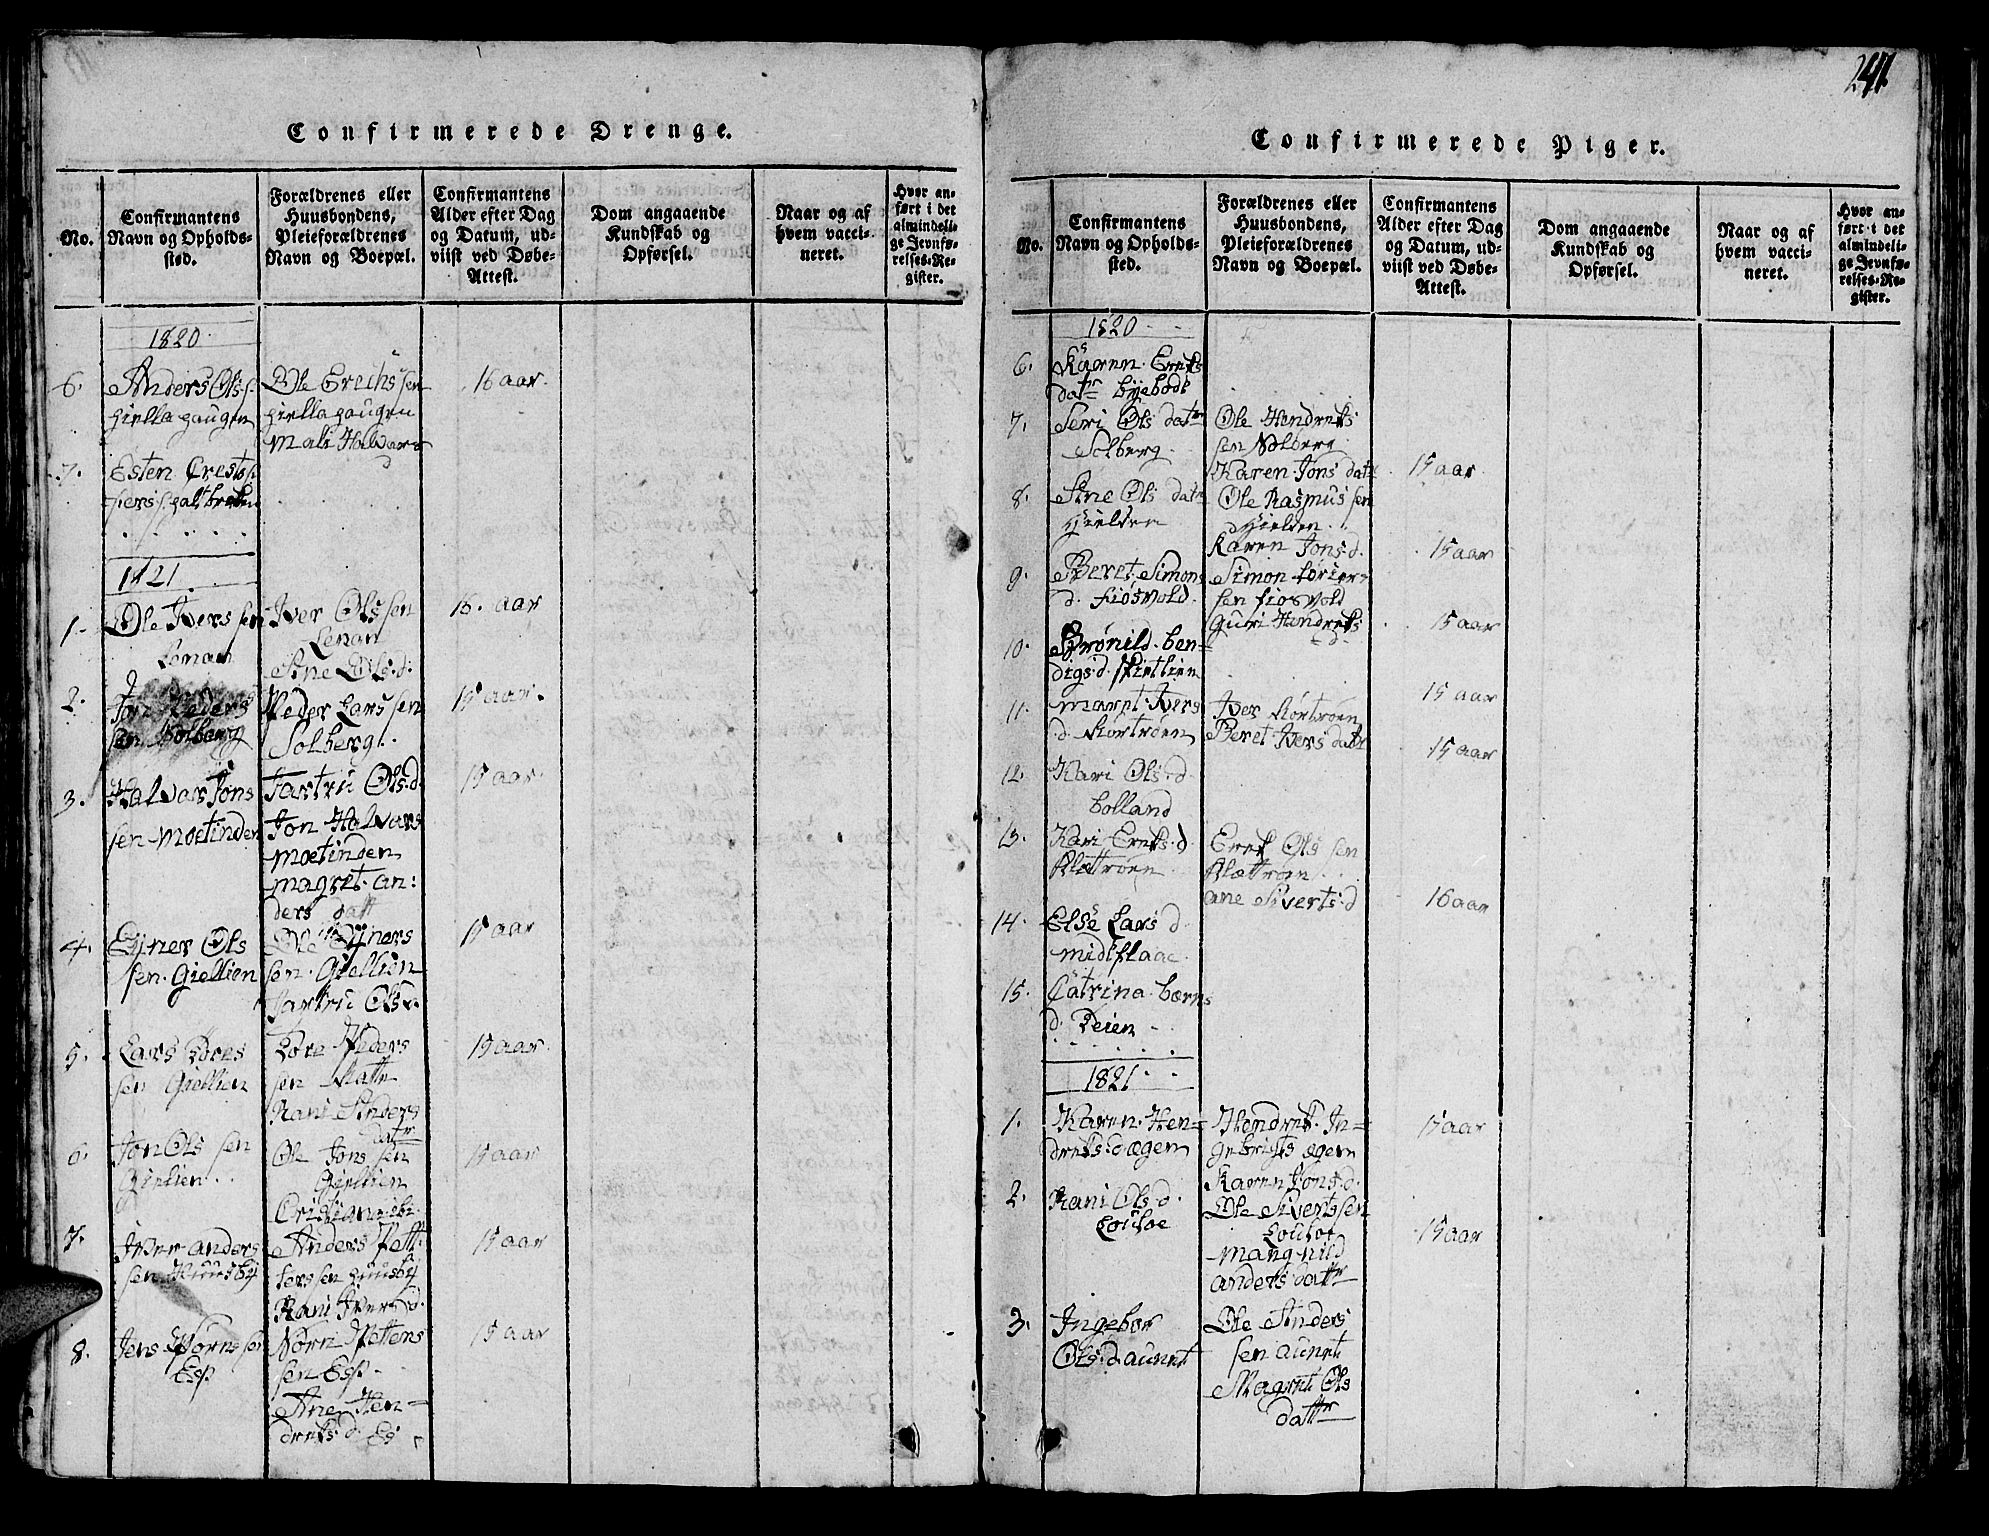 Confirmerede Drenge.
No.
Confirmantens
Navn og Opholds-
sted.
Forældrenes eller
Huusbondens,
Pleieforældrenes
Navn og Boepæl.
Confirmantens
Alder efter Dag
og Datum, ud-
viist ved Døbe-
Attest.
Dom angaaende
Kundskab og
Opførsel.
Naar og af
hvem vacci-
neret.
Hvor an-
ført i det
almindeli-
ge Jevnfø-
relses-Re-
gister.
1820
6.
Anders Ols s.
hiellahaugen
Ole Erichs sen
hiellahaugen
Mali Halvars
d
16 aar.
7.
Esten
1821
1.
Ole Ivers sen
Iver Ols sen
Lenan
Ane Ols:d:
16. aar
2.
Jon Peders
sen Solberg
Peder Lars sen
Solbergt.
15 aar.
3.
Halvar Jons
sen Moetinden
Tartru Ols:d.
Jon Halvars
Moetinden
Magret. an:
ders datt
15 aar.
4.
Ejner Ols
sen. Giellien
Ole Ejners
sen. Giellien
Tartru Ols d.
15 aar
5.
Lars Tores
sen Giellien
Tore Peders
sen Platte
Rani Anders
datr
15 aar
6.
Jon Ols sen
Gielien
Ole Jons sen
Gielien
15 aar
7.
Iver anders
sen Huusby
Anders Pett:
ters sen huusby
Rani Ivers d.
15 aar
8.
Jens Biørns sen
Esp
sen Esp
Ane Hen-
dreks.d. Es
15 aar
241
Confirmerede Piger.
No.
Confirmantens
Navn og Opholds-
sted.
Forældrenes eller
Huusbondens,
Pleieforældrenes
Navn og Boepæl.
Confirmantens
Alder efter Dag
og Datum, ud-
viist ved Døbe-
Attest.
Dom angaaende
Kundskab og
Opførsel.
Naar og af
hvem vacci-
neret.
Hvor an-
ført i det
almindeli-
ge Jevnfø-
relses-Re-
gister.
1820
6.
Karen. Ereks
datr byebode
7.
Seri Ols datr
Solberg
Ole Hendreks
sen Solberg
Karen Jons datr
15 aar
8.
Ane Ols datr
Hielden
Ole Rasmus sen
Hielden
Karen Jons.d.
15 aar
9.
Beret. Simons
d. Fiøsvold.
Simon
sen Fiosvold
Guri Hendreks
d.
15 aar
10.
Brønild. ben-
digs.d. skietlien
15 aar
11.
Maret. Ivers
d. Kortrøen
Iver Kortroen
Beret Ivers datr
15 aar
12.
Kari Ols.d.
bolland
13.
Kari Ereks.d
Klettroen
Erek Ols sen
Klettroen
ane Siverts:d
16 aar
14.
Else Lars d
Midtflaae
15.
Catrina. bærns
d.
1821
1.
Karen. Hen-
dreks.d. ægem
Hendrek. In-
gebrigts ægem
Karen Jons:d.
15 aar
2.
Rani Ols.d.
Losloe
Ole Siverts sen
Losloe
Mangnild
anders datr
15 aar
3.
Ingebor
Ols:d. aunet
Ole Anders
sen aunet
Magret Ols
dattr